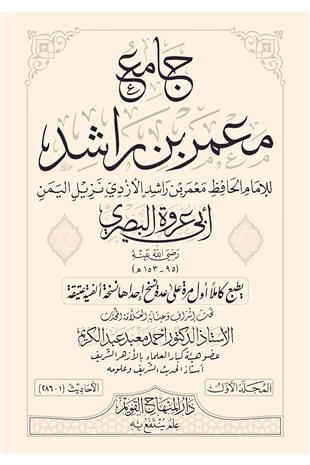 جامع
معمر بن راشد
للإمام الحافظ معمر بن راشد الأزدي نزيل اليمن
أبي عروة البصري
رضي الله عنه
(٩٥ - ١٥٣هـ)
يطبع كاملًا أول مرة على عدة نسخ إحداها نسخة ألفية عتيقة
تحت إشراف وعناية العلامة المحدث
الأستاذ الدكتور أحمد معبد عبد الكريم
عضو هيئة كبار العلماء بالأزهر الشريف
أستاذ الحديث الشريف وعلومه
المجلد الأول
الأحاديث (١-٢٨٦)
دار المنهاج القويم
علم ينتفع به